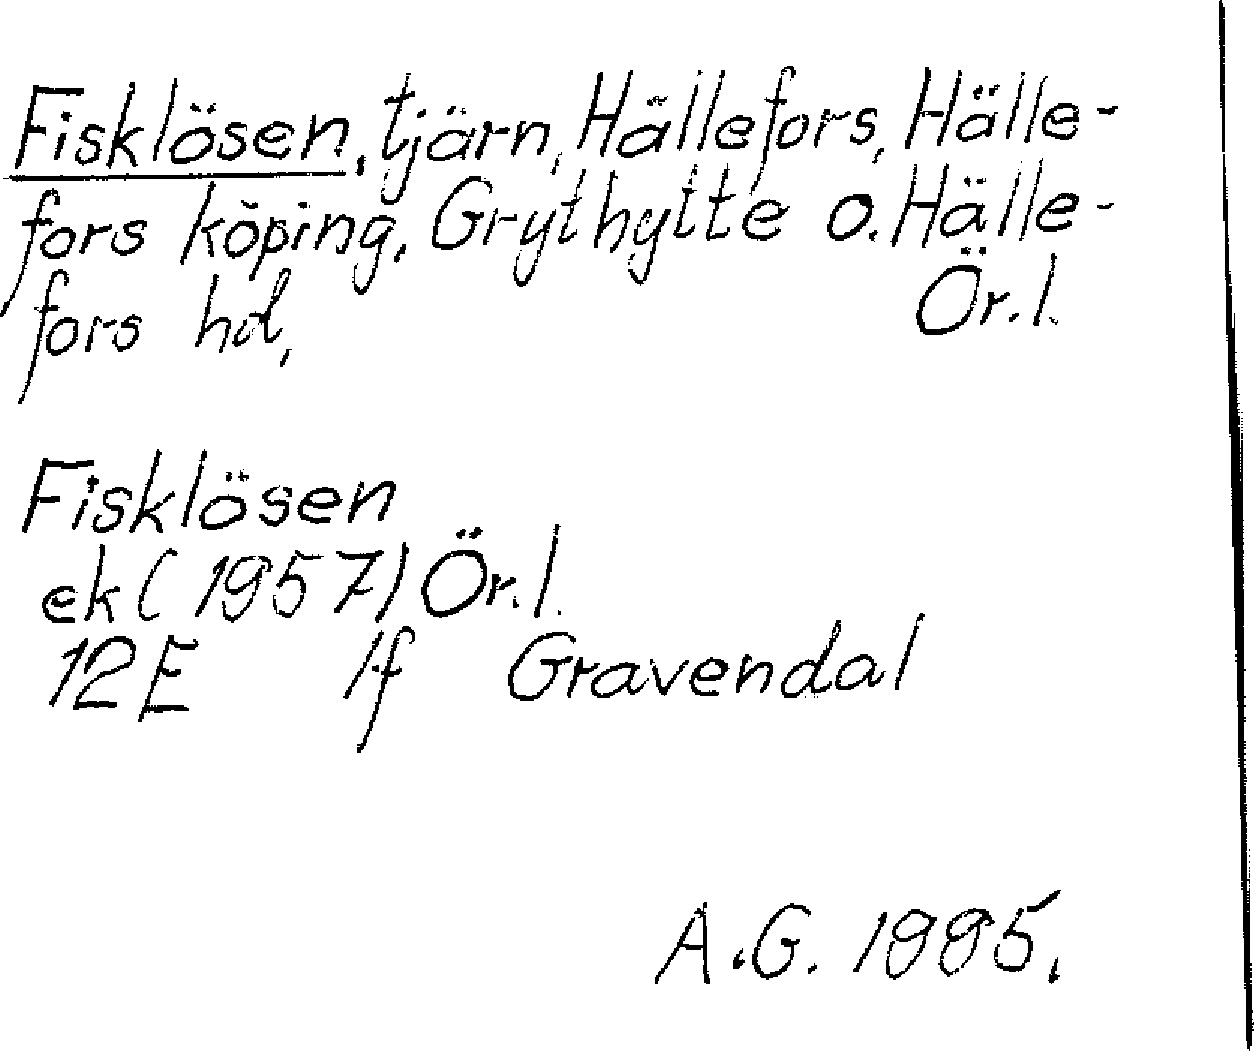 Fisklösen, tjärn, Hällefors, Hälle-
fors köping, Grythytte o. Hälle-
fors hd, Ör.l.
Fisklösen
ek (1957) Ör.l.
12E 1f Gravendal
A.G. 1995.